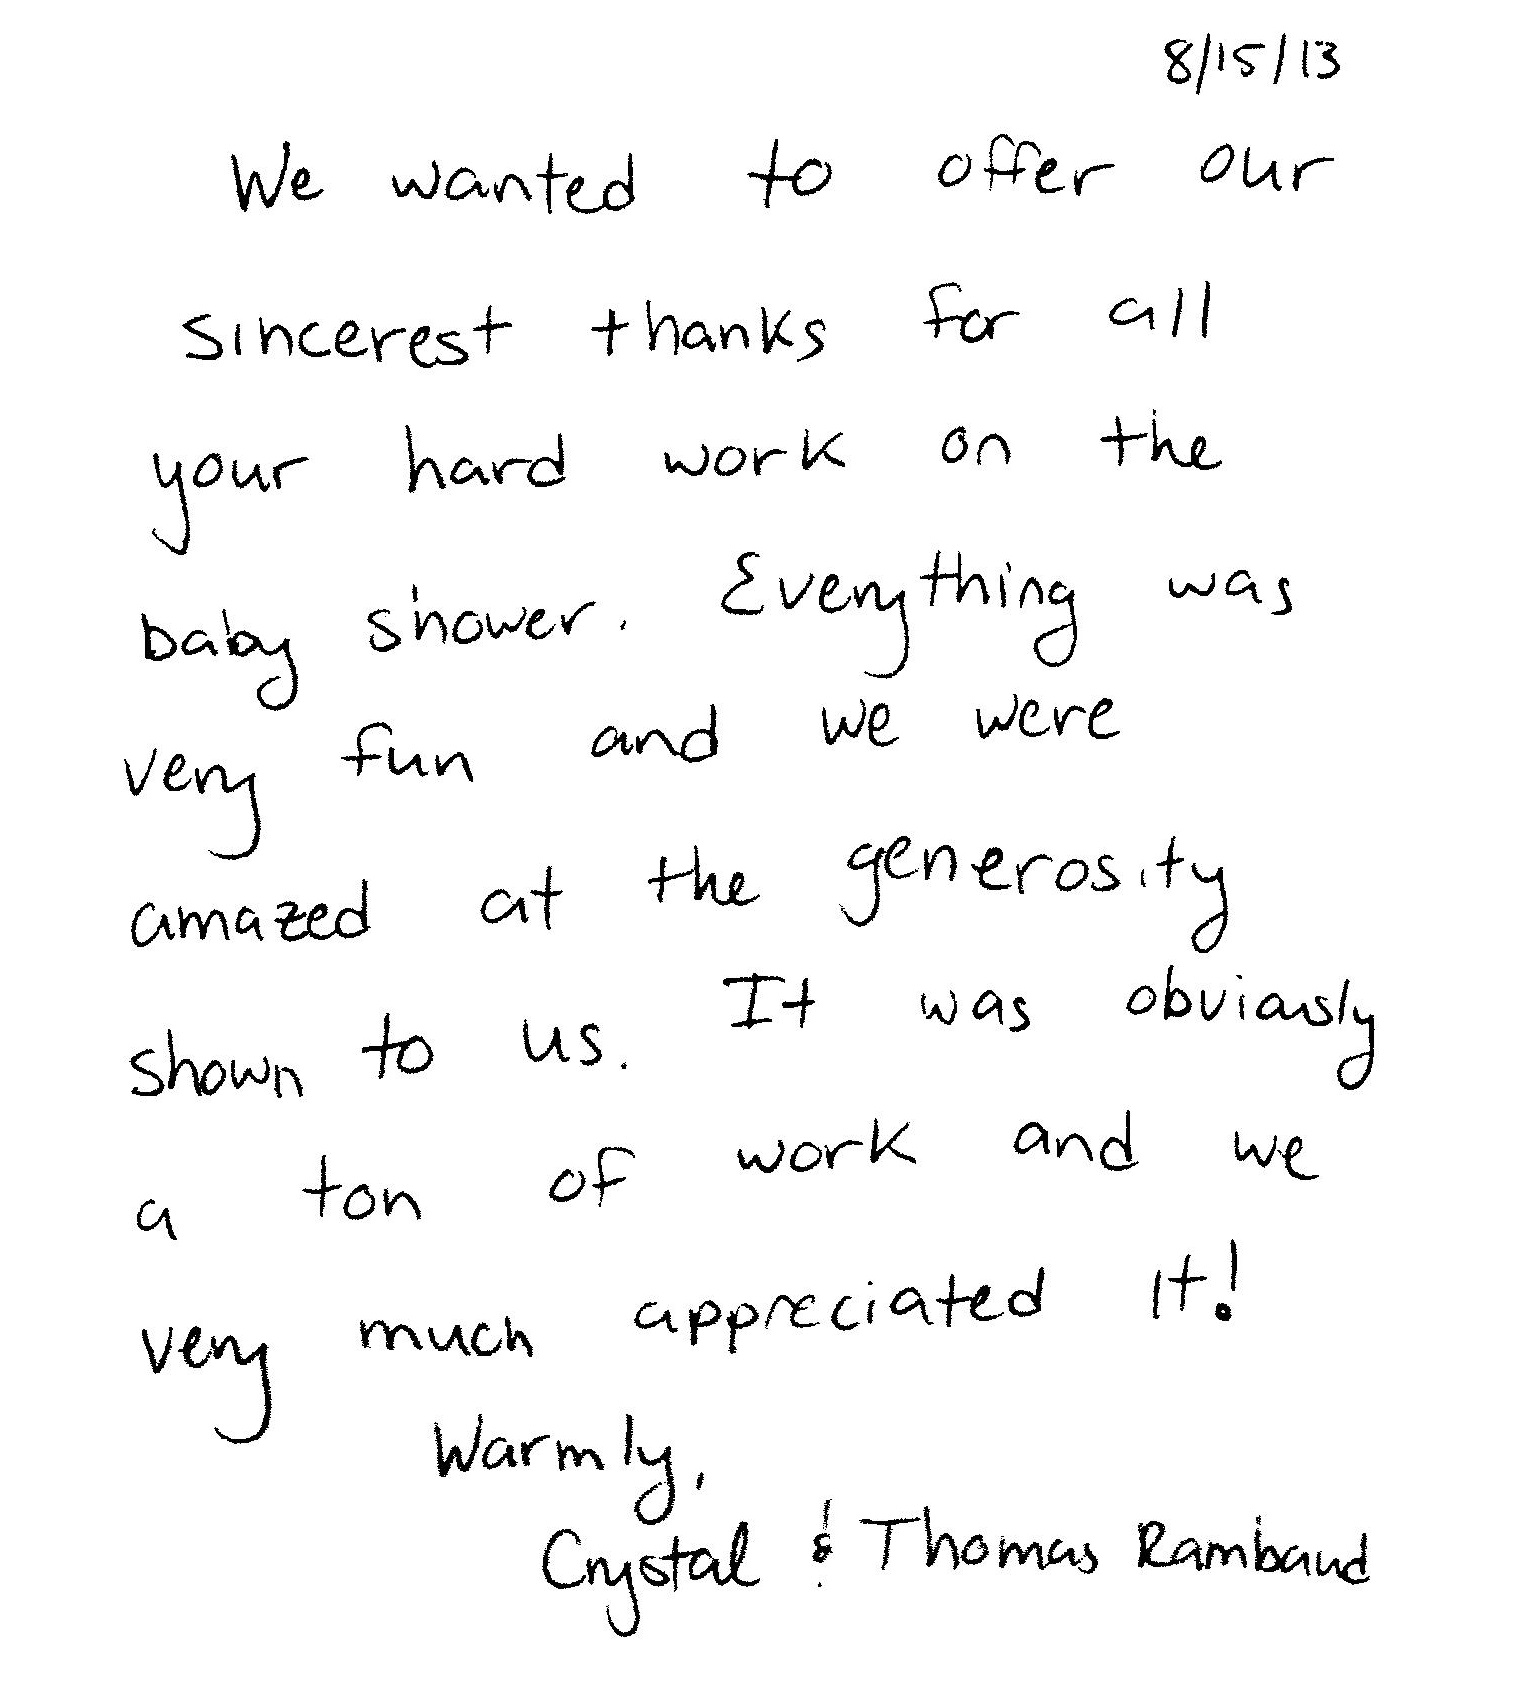 8/15/13
We wanted to offer our
sincerest thanks for all
your hard work on the
baby shower. Everything was
very fun and we were
amazed at the generosity
shown to us. It was obviously
a ton of work and we
very much appreciated it!
Warmly,
Crystal & Thomas Rambaud